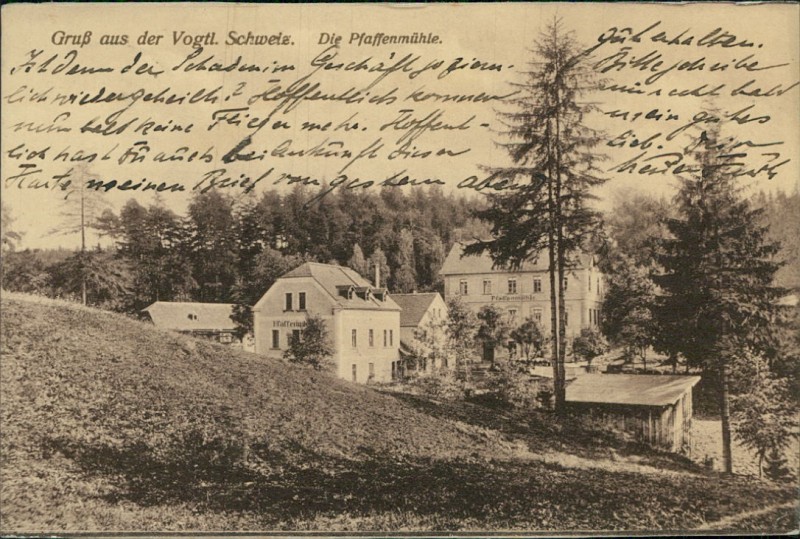 Gruß aus der Vogtl. Schweiz. Die Pfaffenmühle.
Ist denn der Schaden im Geschäft so ziem-
lich wiedergeheilt? Hoffentlich kommen
nun bald keine Flieger mehr. Hoffent-
lich hast Du auch bei Ankunft dieser
Karte meinen Brief von gestern abend
gut erhalten.
Bitte schreibe
mir recht bald
mein gutes
Lieb. Dein
Pfaffenmühle
Pfaffenmühle